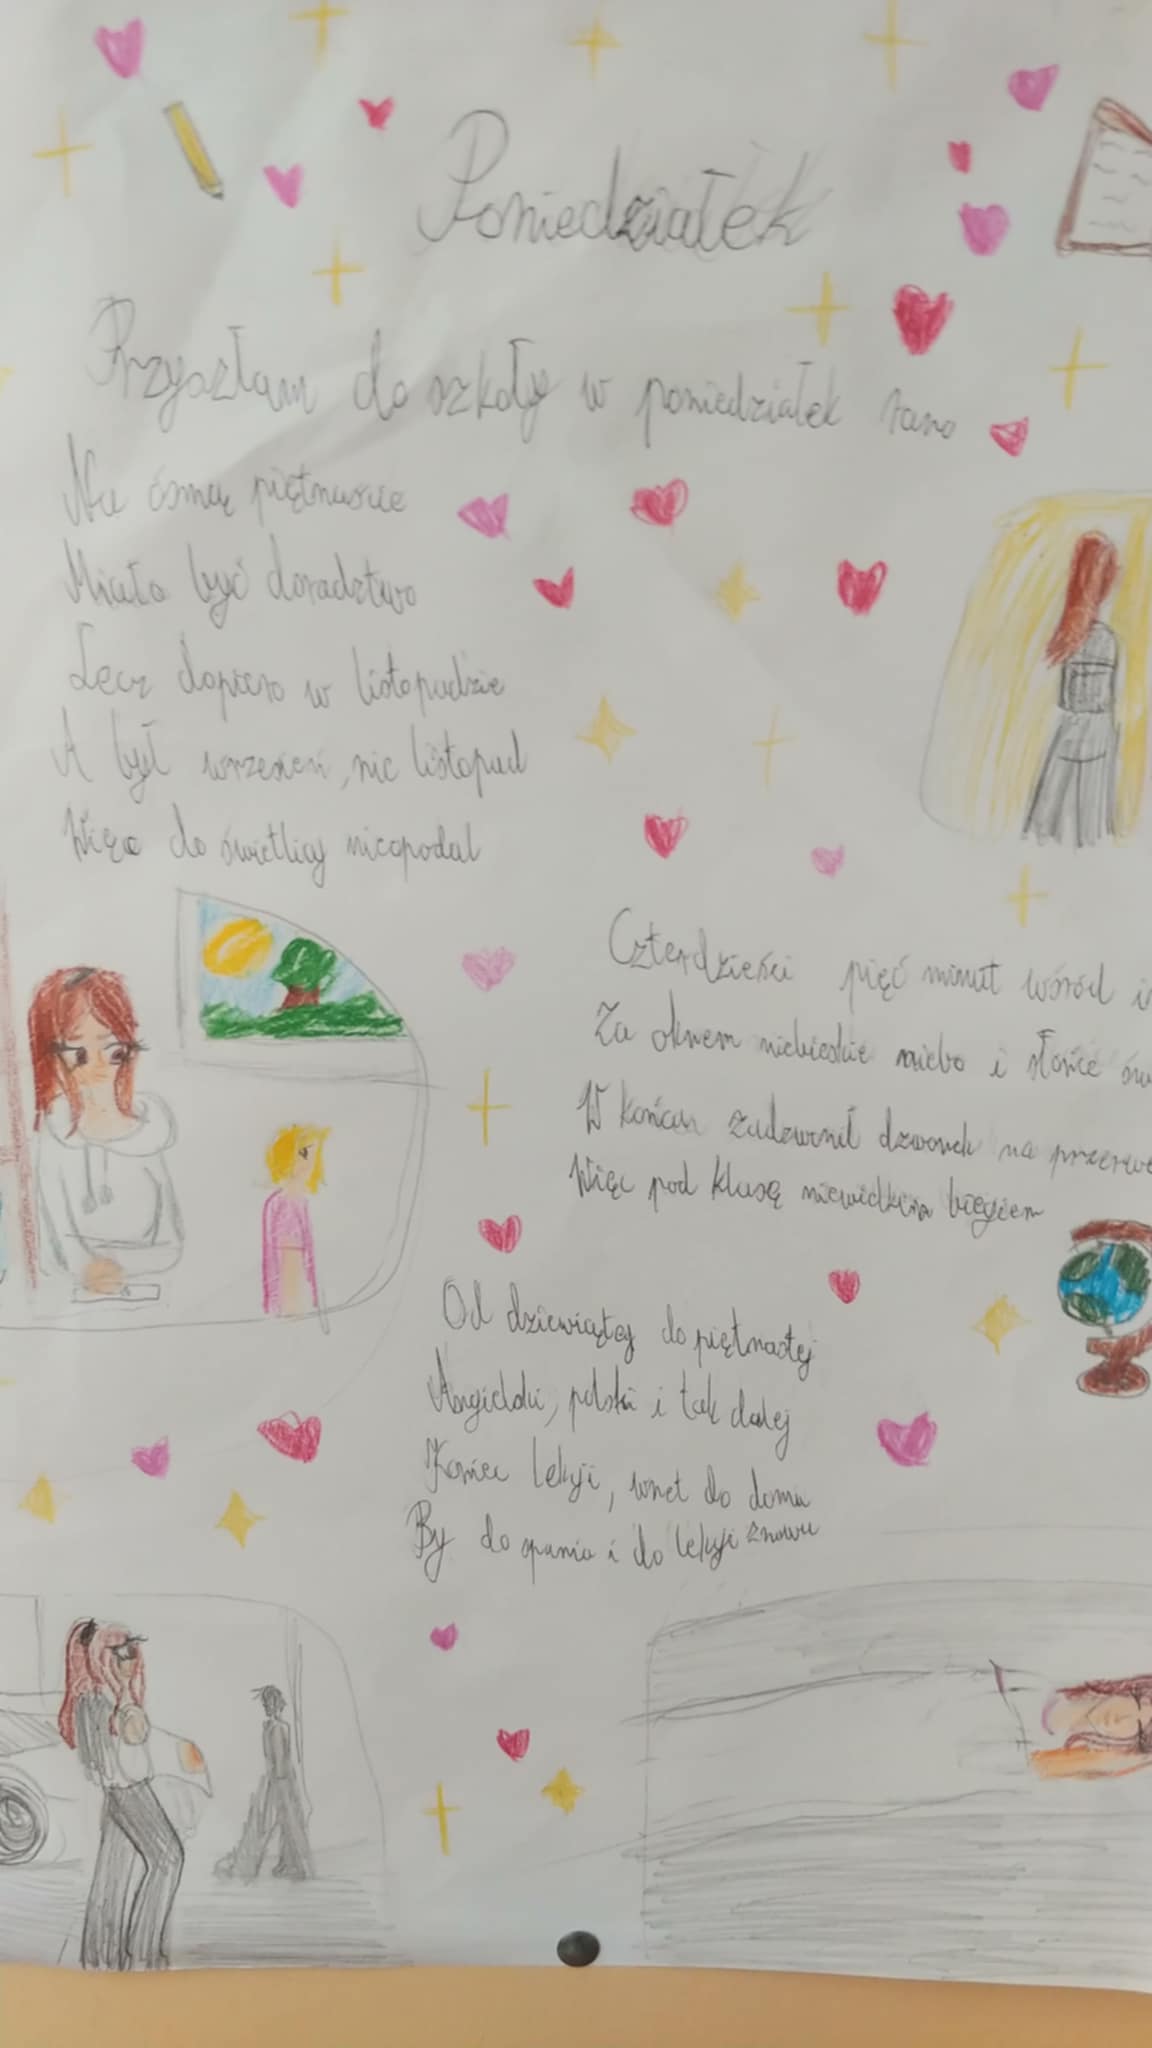 Poniedziałek
Przyszłam do szkoły w poniedziałek rano
Na ósmą piętnaście
Miało być doradztwo
Lecz dopiero w listopadzie
A był wrzesień, nie listopad
Więc do świetlicy nieopodal
Czterdzieści pięć minut wśród
Za oknem niebieskie niebo i słońce
W końcu zadzwonił dzwonek na przerwę
Więc pod klasę niewidkim biegiem
Od dziewiątej do piętnastej
Angielski, polski i tak dalej
Koniec lekcji, wnet do domu
By do spania i do lekcji znowu